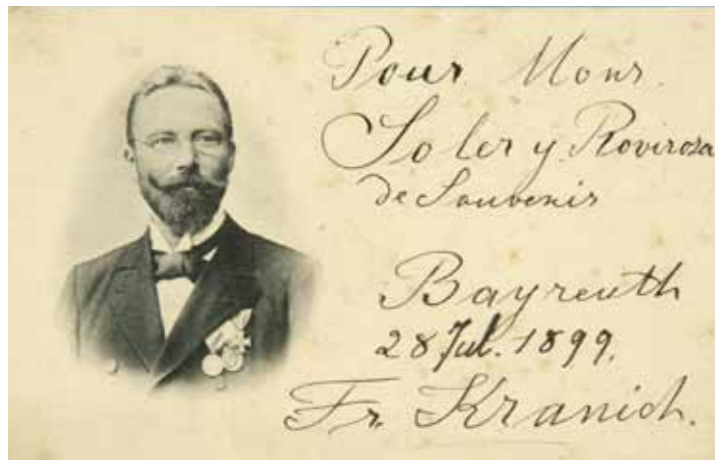 Pour Mons.
Soler y Rovirosa
de Souvenir
Bayreuth
28 Jul. 1899.
Fr. Kranich.